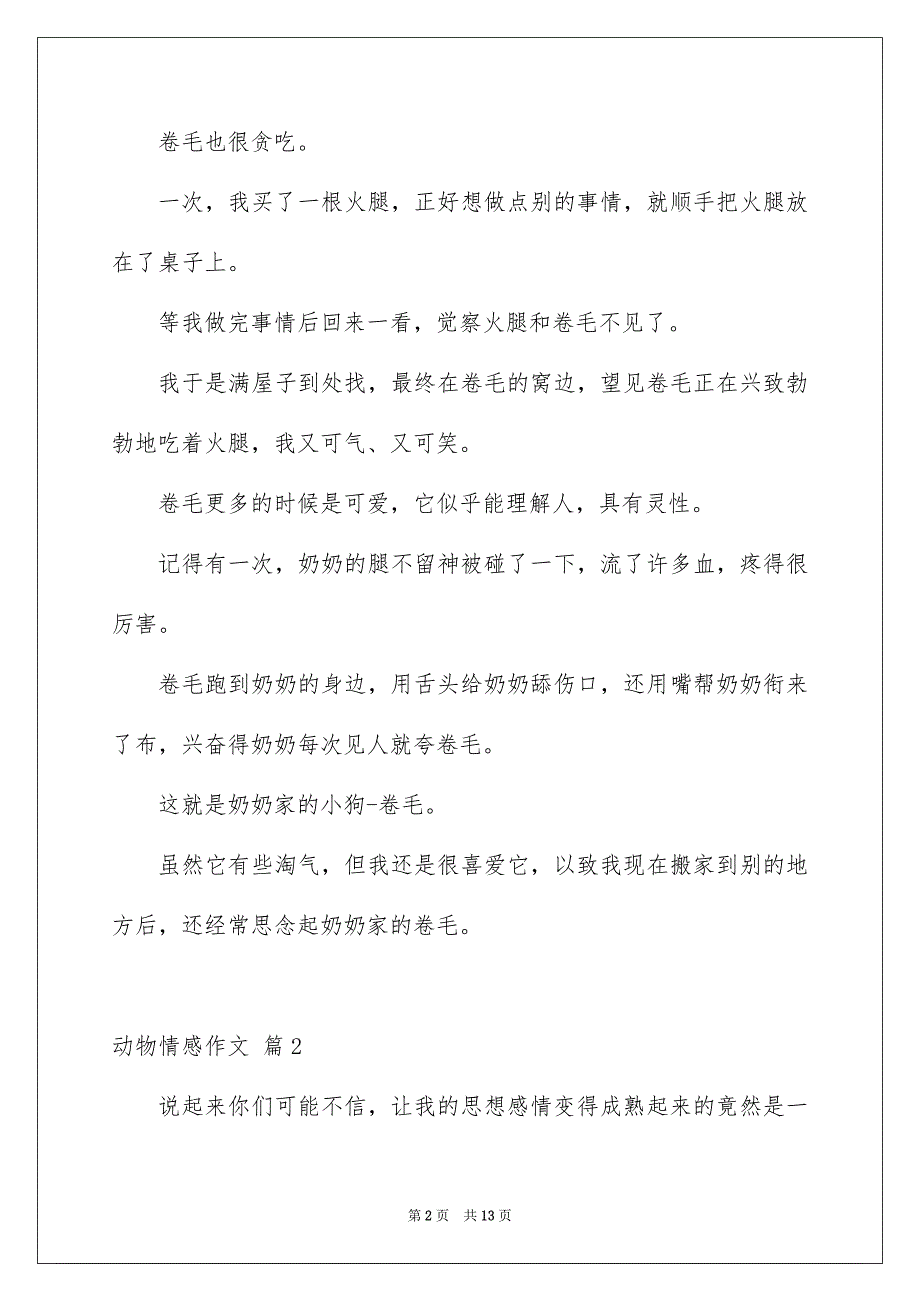 卷毛也很贪吃。
一次，我买了一根火腿，正好想做点别的事情，就顺手把火腿放
在了桌子上。
等我做完事情后回来一看，觉察火腿和卷毛不见了。
我于是满屋子到处找，最终在卷毛的窝边，望见卷毛正在兴致勃
勃地吃着火腿，我又可气、又可笑。
卷毛更多的时候是可爱，它似乎能理解人，具有灵性。
记得有一次，奶奶的腿不留神被碰了一下，流了许多血，疼得很
厉害。
卷毛跑到奶奶的身边，用舌头给奶奶舔伤口，还用嘴帮奶奶衔来
了布，兴奋得奶奶每次见人就夸卷毛。
这就是奶奶家的小狗-卷毛。
虽然它有些淘气，但我还是很喜爱它，以致我现在搬家到别的地
方后，还经常思念起奶奶家的卷毛。
动物情感作文 篇2
说起来你们可能不信，让我的思想感情变得成熟起来的竟然是一
第 2 页 共 13 页